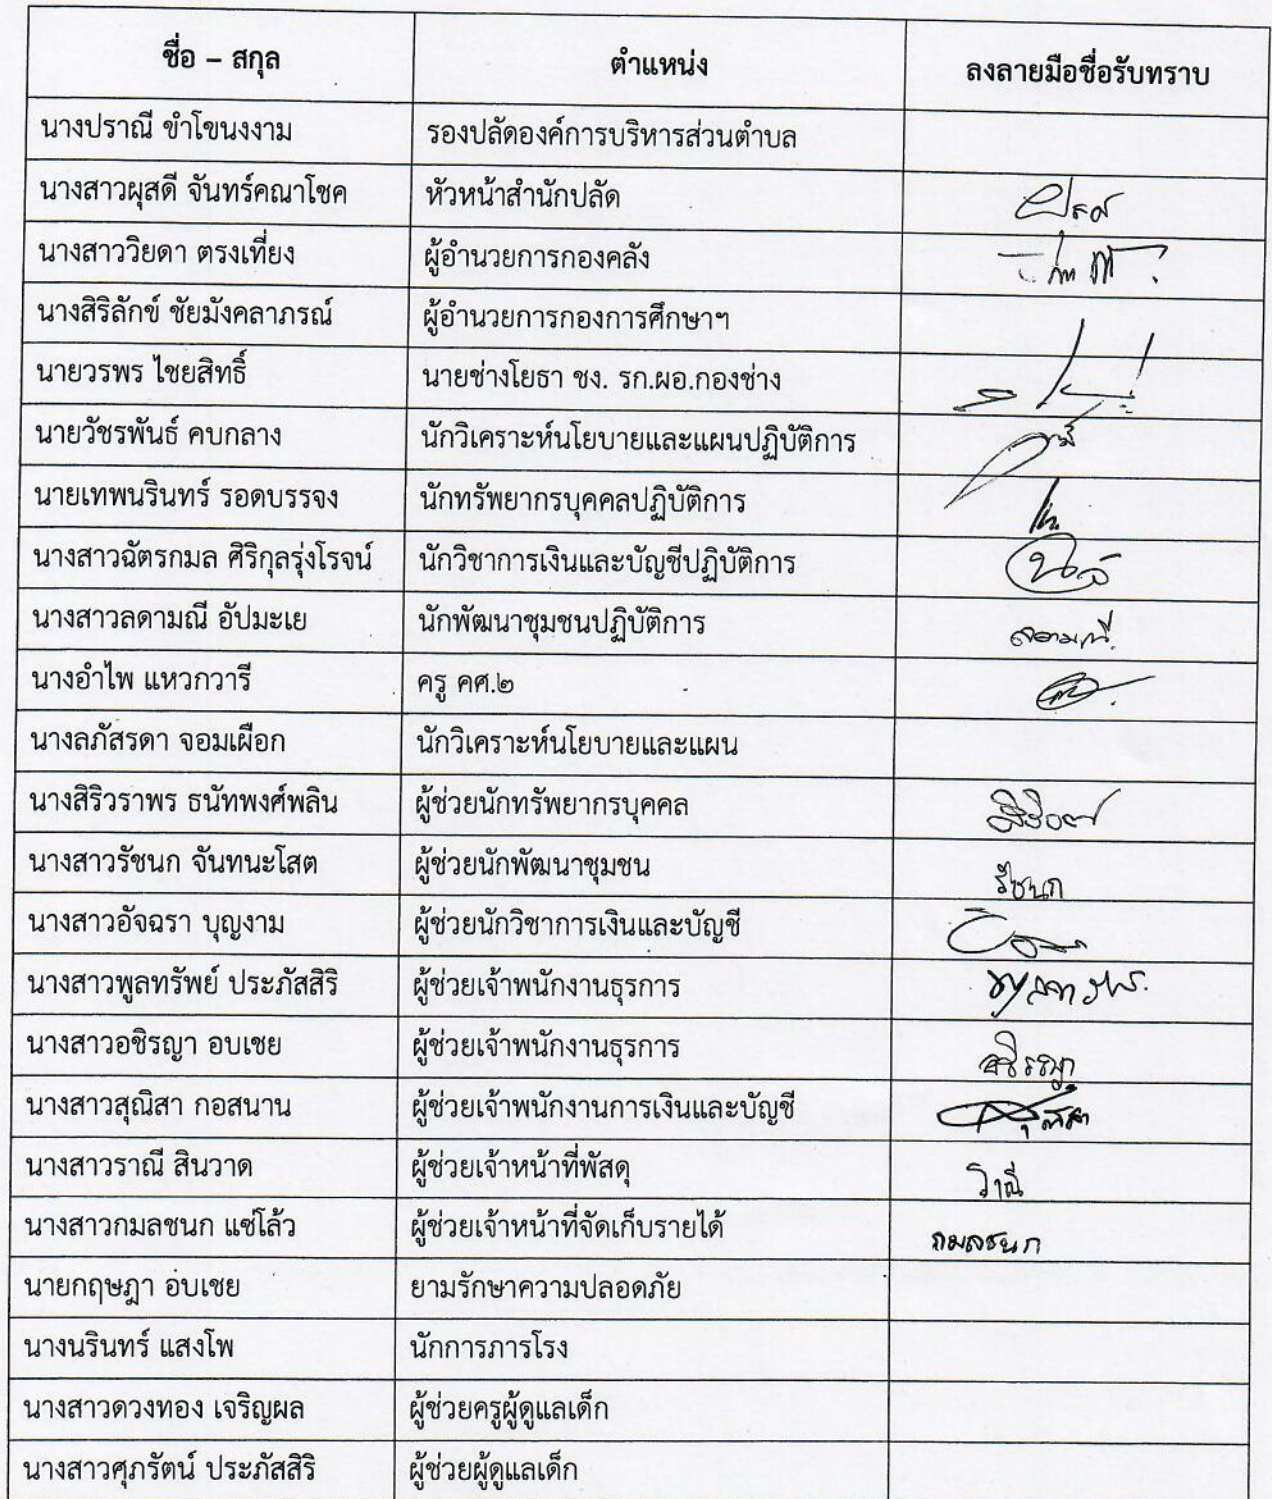 ชื่อ – สกุล ตำแหน่ง ลงลายมือชื่อรับทราบ
นางปราณี ขำโขนงงาม รองปลัดองค์การบริหารส่วนตำบล
นางสาวผุสดี จันทร์คณาโชค หัวหน้าสำนักปลัด
นางสาววิยดา ตรงเที่ยง ผู้อำนวยการกองคลัง
นางสิริลักข์ ชัยมังคลาภรณ์ ผู้อำนวยการกองการศึกษาฯ
นายวรพร ไชยสิทธิ์ นายช่างโยธา ชง. รก.ผอ.กองช่าง
นายวัชรพันธ์ คบกลาง นักวิเคราะห์นโยบายและแผนปฏิบัติการ
นายเทพนรินทร์ รอดบรรจง นักทรัพยากรบุคคลปฏิบัติการ
นางสาวฉัตรกมล ศิริกุลรุ่งโรจน์ นักวิชาการเงินและบัญชีปฏิบัติการ
นางสาวลดามณี อัปมะเย นักพัฒนาชุมชนปฏิบัติการ ลดามณี
นางอำไพ แหวกวารี ครู คศ.๒
นางลภัสรดา จอมเผือก นักวิเคราะห์นโยบายและแผน
นางสิริวราพร ธนัทพงศ์พลิน ผู้ช่วยนักทรัพยากรบุคคล
นางสาวรัชนก จันทนะโสต ผู้ช่วยนักพัฒนาชุมชน รัชนก
นางสาวอัจฉรา บุญงาม ผู้ช่วยนักวิชาการเงินและบัญชี
นางสาวพูลทรัพย์ ประภัสสิริ ผู้ช่วยเจ้าพนักงานธุรการ
นางสาวอชิรญา อบเชย ผู้ช่วยเจ้าพนักงานธุรการ อชิรญา
นางสาวสุณิสา กอสนาน ผู้ช่วยเจ้าพนักงานการเงินและบัญชี
นางสาวราณี สินวาด ผู้ช่วยเจ้าหน้าที่พัสดุ ราณี
นางสาวกมลชนก แซ่โล้ว ผู้ช่วยเจ้าหน้าที่จัดเก็บรายได้ กมลชนก
นายกฤษฎา อบเชย ยามรักษาความปลอดภัย
นางนรินทร์ แสงโพ นักการภารโรง
นางสาวดวงทอง เจริญผล ผู้ช่วยครูผู้ดูแลเด็ก
นางสาวศุภรัตน์ ประภัสสิริ ผู้ช่วยผู้ดูแลเด็ก